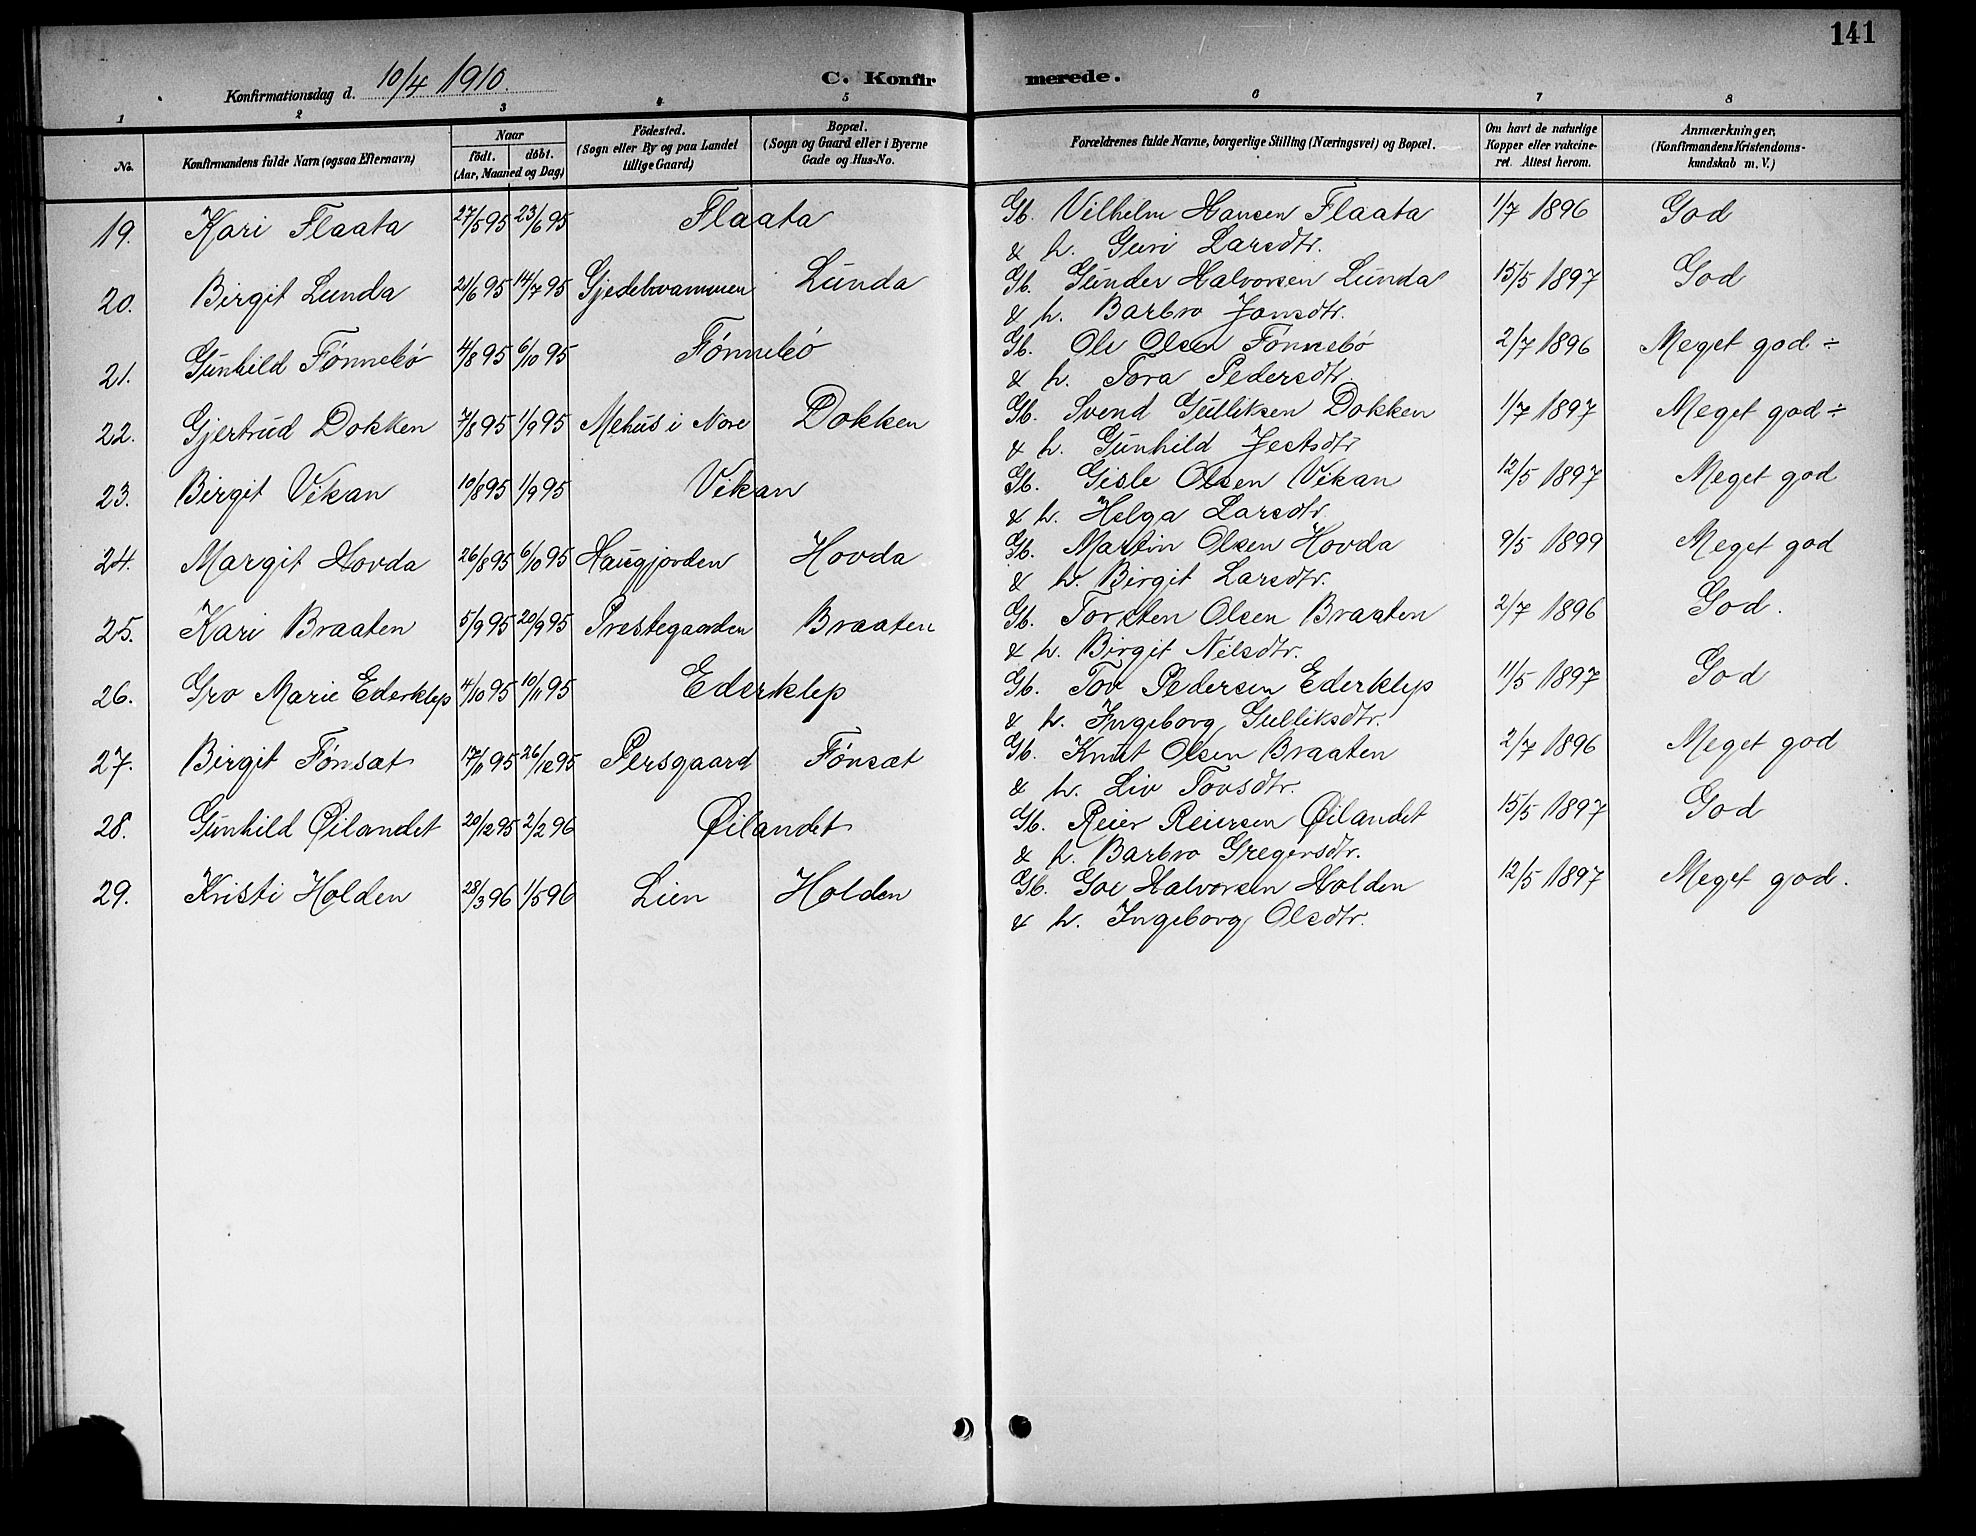 141
Konfirmationsdag d. 10/4 1910.
C. Konfirmerede.
1 2 3 4 5 6 7 8
No.
Konfirmandens fulde Navn (ogsaa Efternavn)
Naar
födt. döbt.
(Aar, Maaned og Dag)
Födested.
(Sogn eller By og paa Landet
tillige Gaard)
Bopæl.
(Sogn og Gaard eller i Byerne
Gade og Hus-No.
Forældrenes fulde Navne, borgerlige Stilling (Næringsvei) og Bopæl.
Om havt de naturlige
Kopper eller vakcine-
ret. Attest herom.
Anmærkninger,
(Konfirmandens Kristendoms-
kundskab m. V.)
19. Kari Flaata 27/5 95 23/6 95 Flaata Gb. Vilhelm Hansen Flaata 1/7 1896 God
& h. Guri Larsdtr.
20. Birgit Lunda 21/6 95 14/7 95 Gjedehvammen Lunda Gb. Gunder Halvorsen Lunda 15/5 1897 God
& h. Barbro Jonsdtr.
21. Gunhild Fønnebø 4/8 95 6/10 95 Fønnebø Gb. Ole Olsen Fønnebø 2/7 1896 Meget god ÷
& h. Tora Pedersdtr.
22. Gjertrud Dokken 7/8 95 1/9 95 Mehus i Nore Dokken Gb. Svend Gulliksen Dokken 1/7 1897 Meget god ÷
& h. Gunhild Jectsdtr
23. Birgit Vikan 10/8 95 1/9 95 Vikan Gb. Gisle Olsen Vikan 12/5 1897 Meget god
& h. Helga Larsdtr.
24. Margit Hovda 26/8 95 6/10 95 Haugjorden Hovda Gb. Martin Olsen Hovda 9/5 1899 Meget god
& h. Birgit Larsdtr.
25. Kari Braaten 5/9 95 20/9 95 Prestegaarden Braaten Gb. Torsten Olsen Braaten 2/7 1896 God.
& h. Birgit Nilsdtr.
26. Gro Marie Ederklep 4/10 95 10/11 95 Ederklep Gb. Tov Pedersen Ederklep 11/5 1897 God
& h. Ingeborg Gulliksdtr.
27. Birgit Fønsæt 17/11 95 26/12 95 Persgaard Fønsæt Gb. Knut Olsen Braaten 2/7 1896 Meget god
& h. Liv Tovsdtr.
28. Gunhild Øilandet 20/12 95 2/2 96 Øilandet Gb. Reier Reiersen Øilandet 15/5 1897 God
& h. Barbro Gregersdtr.
29. Kristi Holden 28/3 96 1/5 96 Lien Holden Gb. Goe Halvorsen Holden 12/5 1897 Meget god.
& h. Ingeborg Olsdtr.